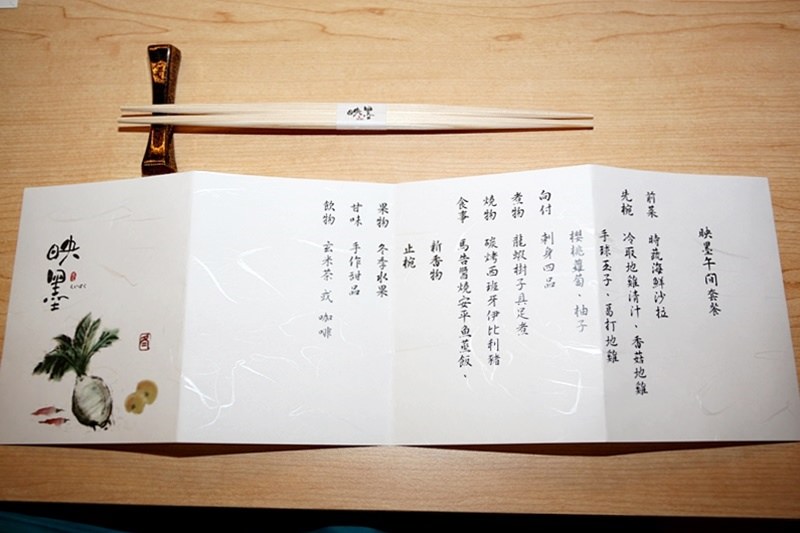 映墨
映墨
映墨午间套餐
前菜 時蔬海鮮沙拉
先椀 冷取地雞清汁、香菇地雞
手球玉子、葛打地雞
櫻桃蘿蔔、柚子
向付 刺身四品
煮物 龍蝦樹子具足煮
燒物 碳烤西班牙伊比利豬
食事 馬告醬燒安平魚蒸飯、
新香物
止椀
果物 冬季水果
甘味 手作甜品
飲物 玄米茶 或 咖啡